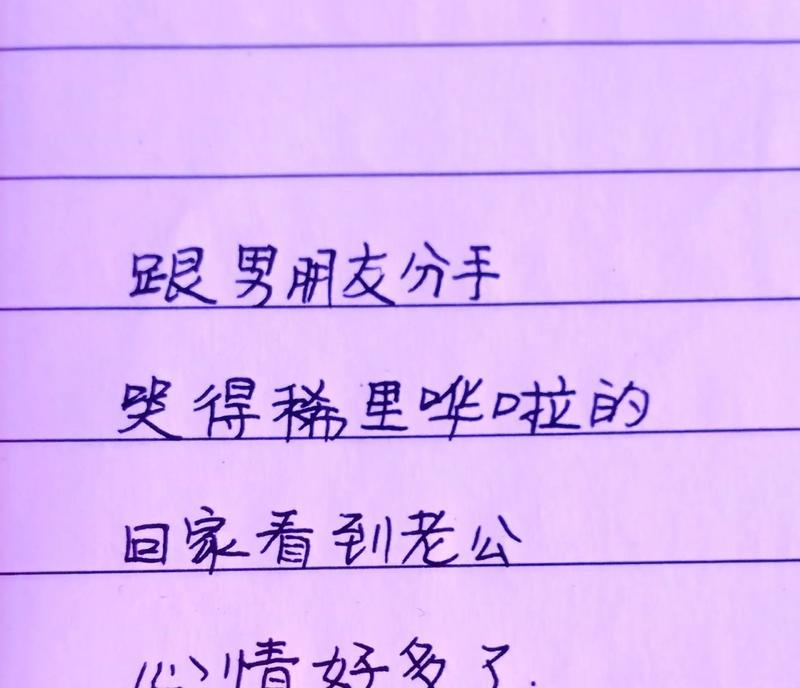 跟男朋友分手
哭得稀里哗啦的
回家看到老公
心情好多了.